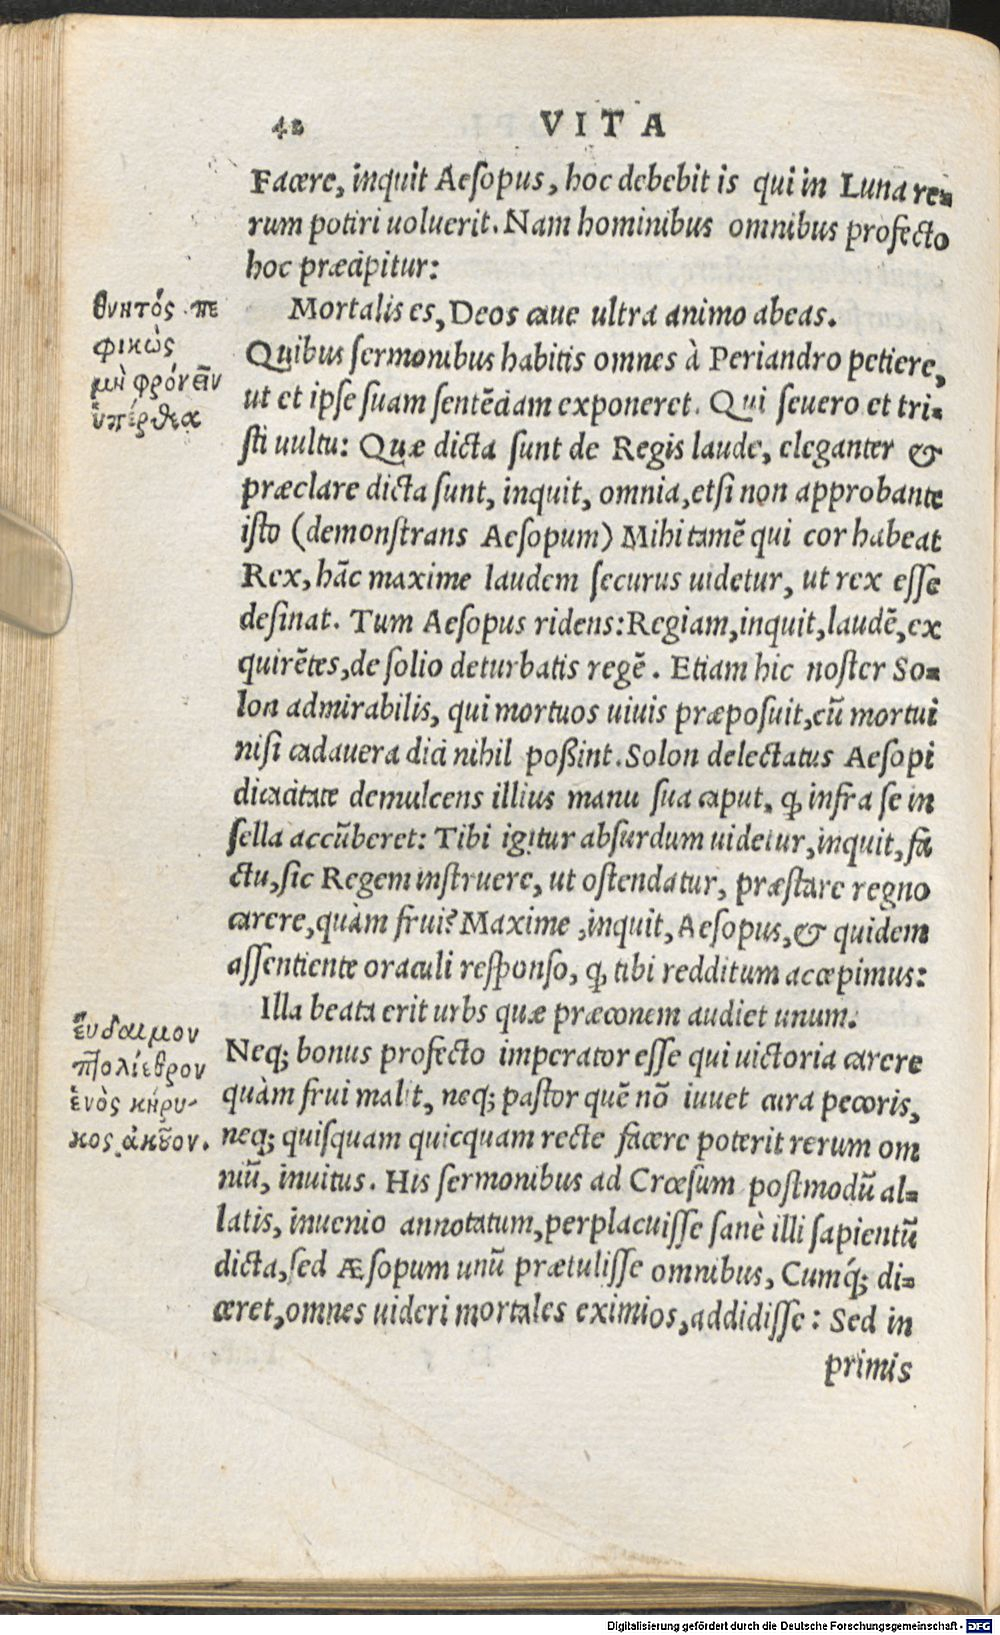 42 VITA
Facere, inquit Aesopus, hoc debebit is qui in Luna re-
rum potiri uoluerit. Nam hominibus omnibus profecto
hoc præcipitur:
Mortalis es, Deos caue ultra animo abeas.
θνητός πε
φικὼς
μὴ φρόνειν
ὑπέρθεα
Quibus sermonibus habitis omnes à Periandro petiere,
ut et ipse suam sentẽciam exponeret. Qui seuero et tri-
sti uultu: Quæ dicta sunt de Regis laude, eleganter &
præclare dicta sunt, inquit, omnia, etsi non approbante
isto (demonstrans Aesopum) Mihi tamẽ qui cor habeat
Rex, hãc maxime laudem securus uidetur, ut rex esse
desinat. Tum Aesopus ridens: Regiam, inquit, laudẽ, ex
quirẽtes, de solio deturbatis regẽ. Etiam hic noster So-
lon admirabilis, qui mortuos uiuis præposuit, cũ mortui
nisi cadauera dici nihil poßint. Solon delectatus Aesopi
dicacitate demulcens illius manu sua caput, ꝙ infra se in
sella accũberet: Tibi igitur absurdum uidetur, inquit, fa
ctu, sic Regem instruere, ut ostendatur, præstare regno
carere, quàm frui? Maxime, inquit, Aesopus, & quidem
assentiente oraculi responso, ꝙ tibi redditum accepimus:
Illa beata erit urbs quæ præconem audiet unum.
ἔυδαιμον
πολίεθρον
ἑνὸς κήρυ-
κος ἀκοῦον.
Neq; bonus profecto imperator esse qui uictoria carere
quàm frui malit, neq; pastor quẽ nõ iuuet cura pecoris,
neq; quisquam quicquam recte facere poterit rerum om
niũ, inuitus. His sermonibus ad Crœsum postmodũ al-
latis, inuenio annotatum, perplacuisse sanè illi sapientũ
dicta, sed Æsopum unũ prætulisse omnibus, Cumq́; di-
ceret, omnes uideri mortales eximios, addidisse: Sed in
primis
Digitalisierung gefördert durch die Deutsche Forschungsgemeinschaft - DFG